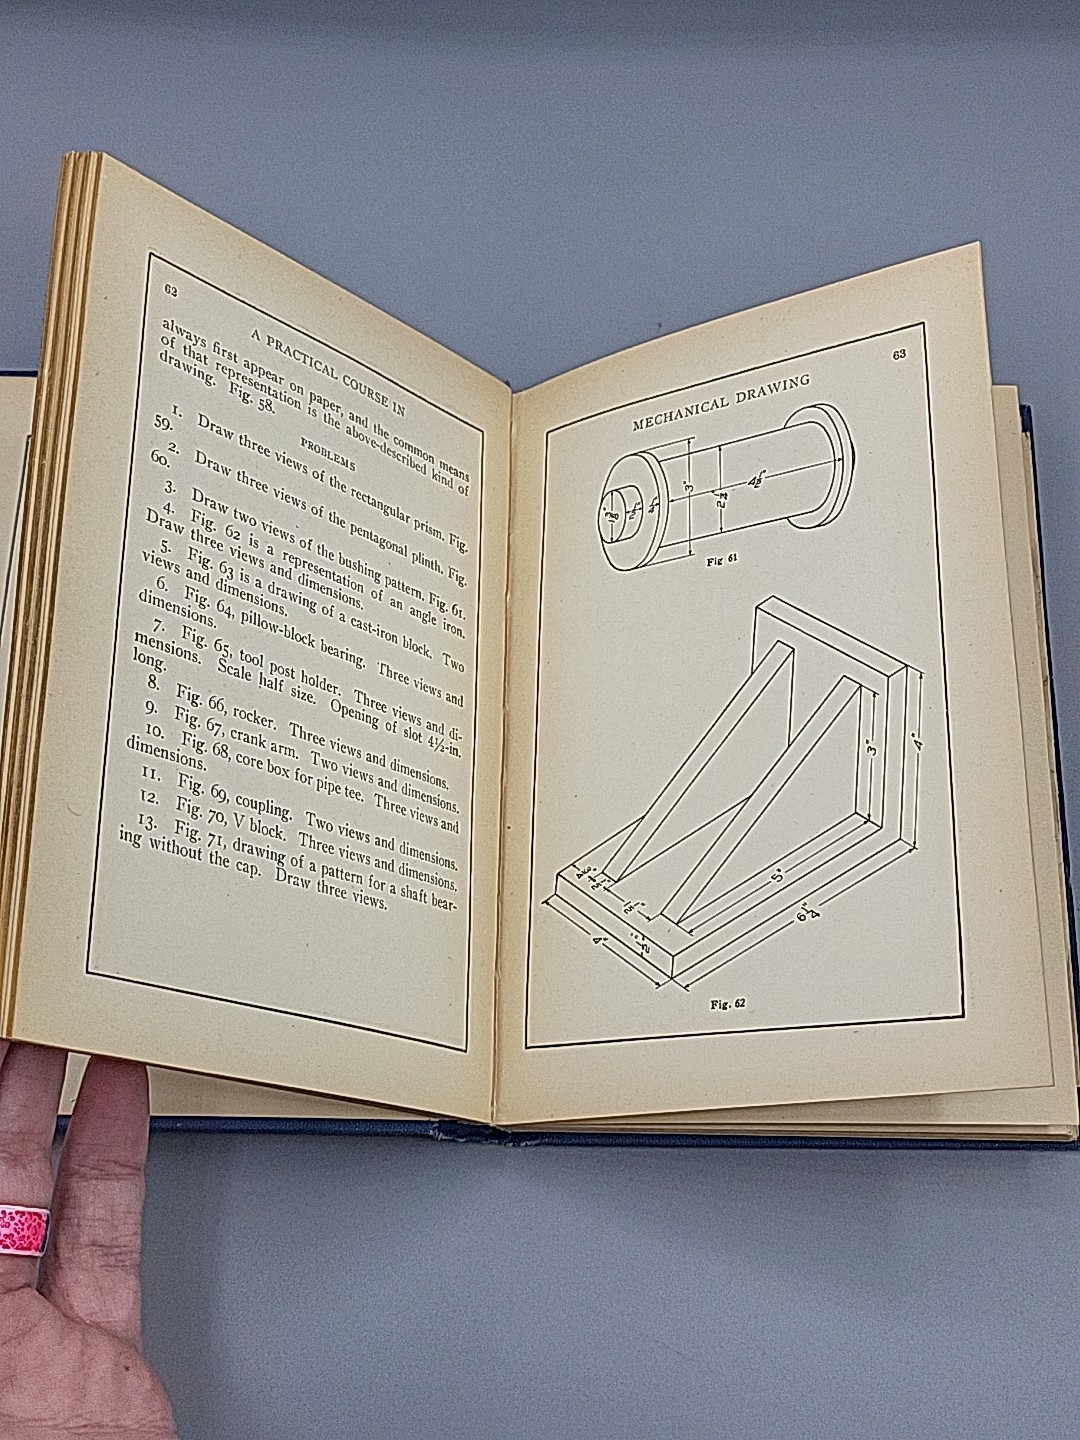 62
A PRACTICAL COURSE IN
always first appear on paper, and the common means
of that representation is the above-described kind of
drawing. Fig. 58.
PROBLEMS
1. Draw three views of the rectangular prism. Fig.
59.
2. Draw three views of the pentagonal plinth. Fig.
60.
3. Draw two views of the bushing pattern. Fig. 61.
4. Fig. 62 is a representation of an angle iron.
Draw three views and dimensions.
5. Fig. 63 is a drawing of a cast-iron block. Two
views and dimensions.
6. Fig. 64, pillow-block bearing. Three views and
dimensions.
7. Fig. 65, tool post holder. Three views and di-
mensions. Scale half size. Opening of slot 4½-in.
long.
8. Fig. 66, rocker. Three views and dimensions.
9. Fig. 67, crank arm. Two views and dimensions.
10. Fig. 68, core box for pipe tee. Three views and
dimensions.
11. Fig. 69, coupling. Two views and dimensions.
12. Fig. 70, V block. Three views and dimensions.
13. Fig. 71, drawing of a pattern for a shaft bear-
ing without the cap. Draw three views.
63
MECHANICAL DRAWING
3"
2¼"
Fig 61
3"
4"
5"
6¼"
4"
Fig. 62